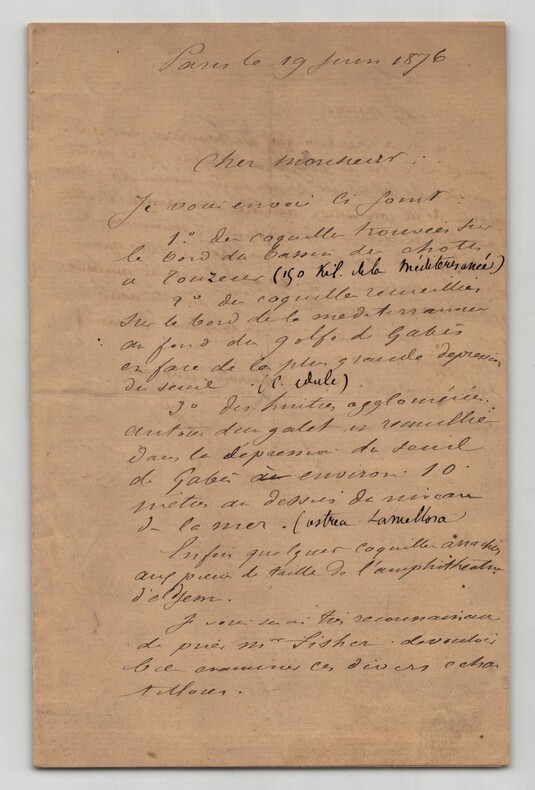 Paris le 19 Juin 1876
Cher monsieur.
Je vous envoie ci joint :
1.° des coquilles trouvées sur
le bord du bassin des chotts
a Touzeur (150 Kil. de la Méditerranée)
2.° des coquilles recueillies
sur le bord de la mediterranée
au fond du golfe de Gabès
en face de la plus grande depression
du seuil . (C. edule)
3° des huitres agglomérées
autour d'un galet et
dans la dépression du seuil
de Gabès a environ 10
mètres au dessus du niveau
de la mer . (ostrea Lamellosa
Enfin quelques coquilles arrachées
aux pierres de taille de l'amphithéatre
d'el Jem.
Je vous serai très reconnaissant
de prier Mr Fisher de vouloir
bien examiner ces divers echan
tillons .